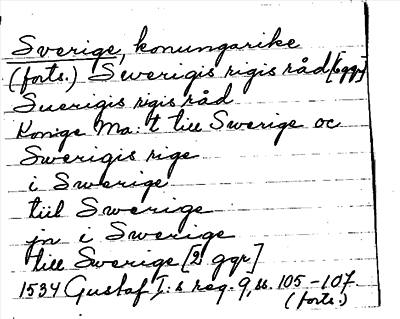 Sverige, konungarike
(forts.) Swerigis rigis råd [6 ggr]
Suerigis rigis råd
Konge Ma:t till Swerige oc
Swerigis rige
i Swerige
tiil Swerige
jn i Swerige
till Swerige [2 ggr]
1534 Gustaf I:s reg. 9, ss. 105-107
(forts.)